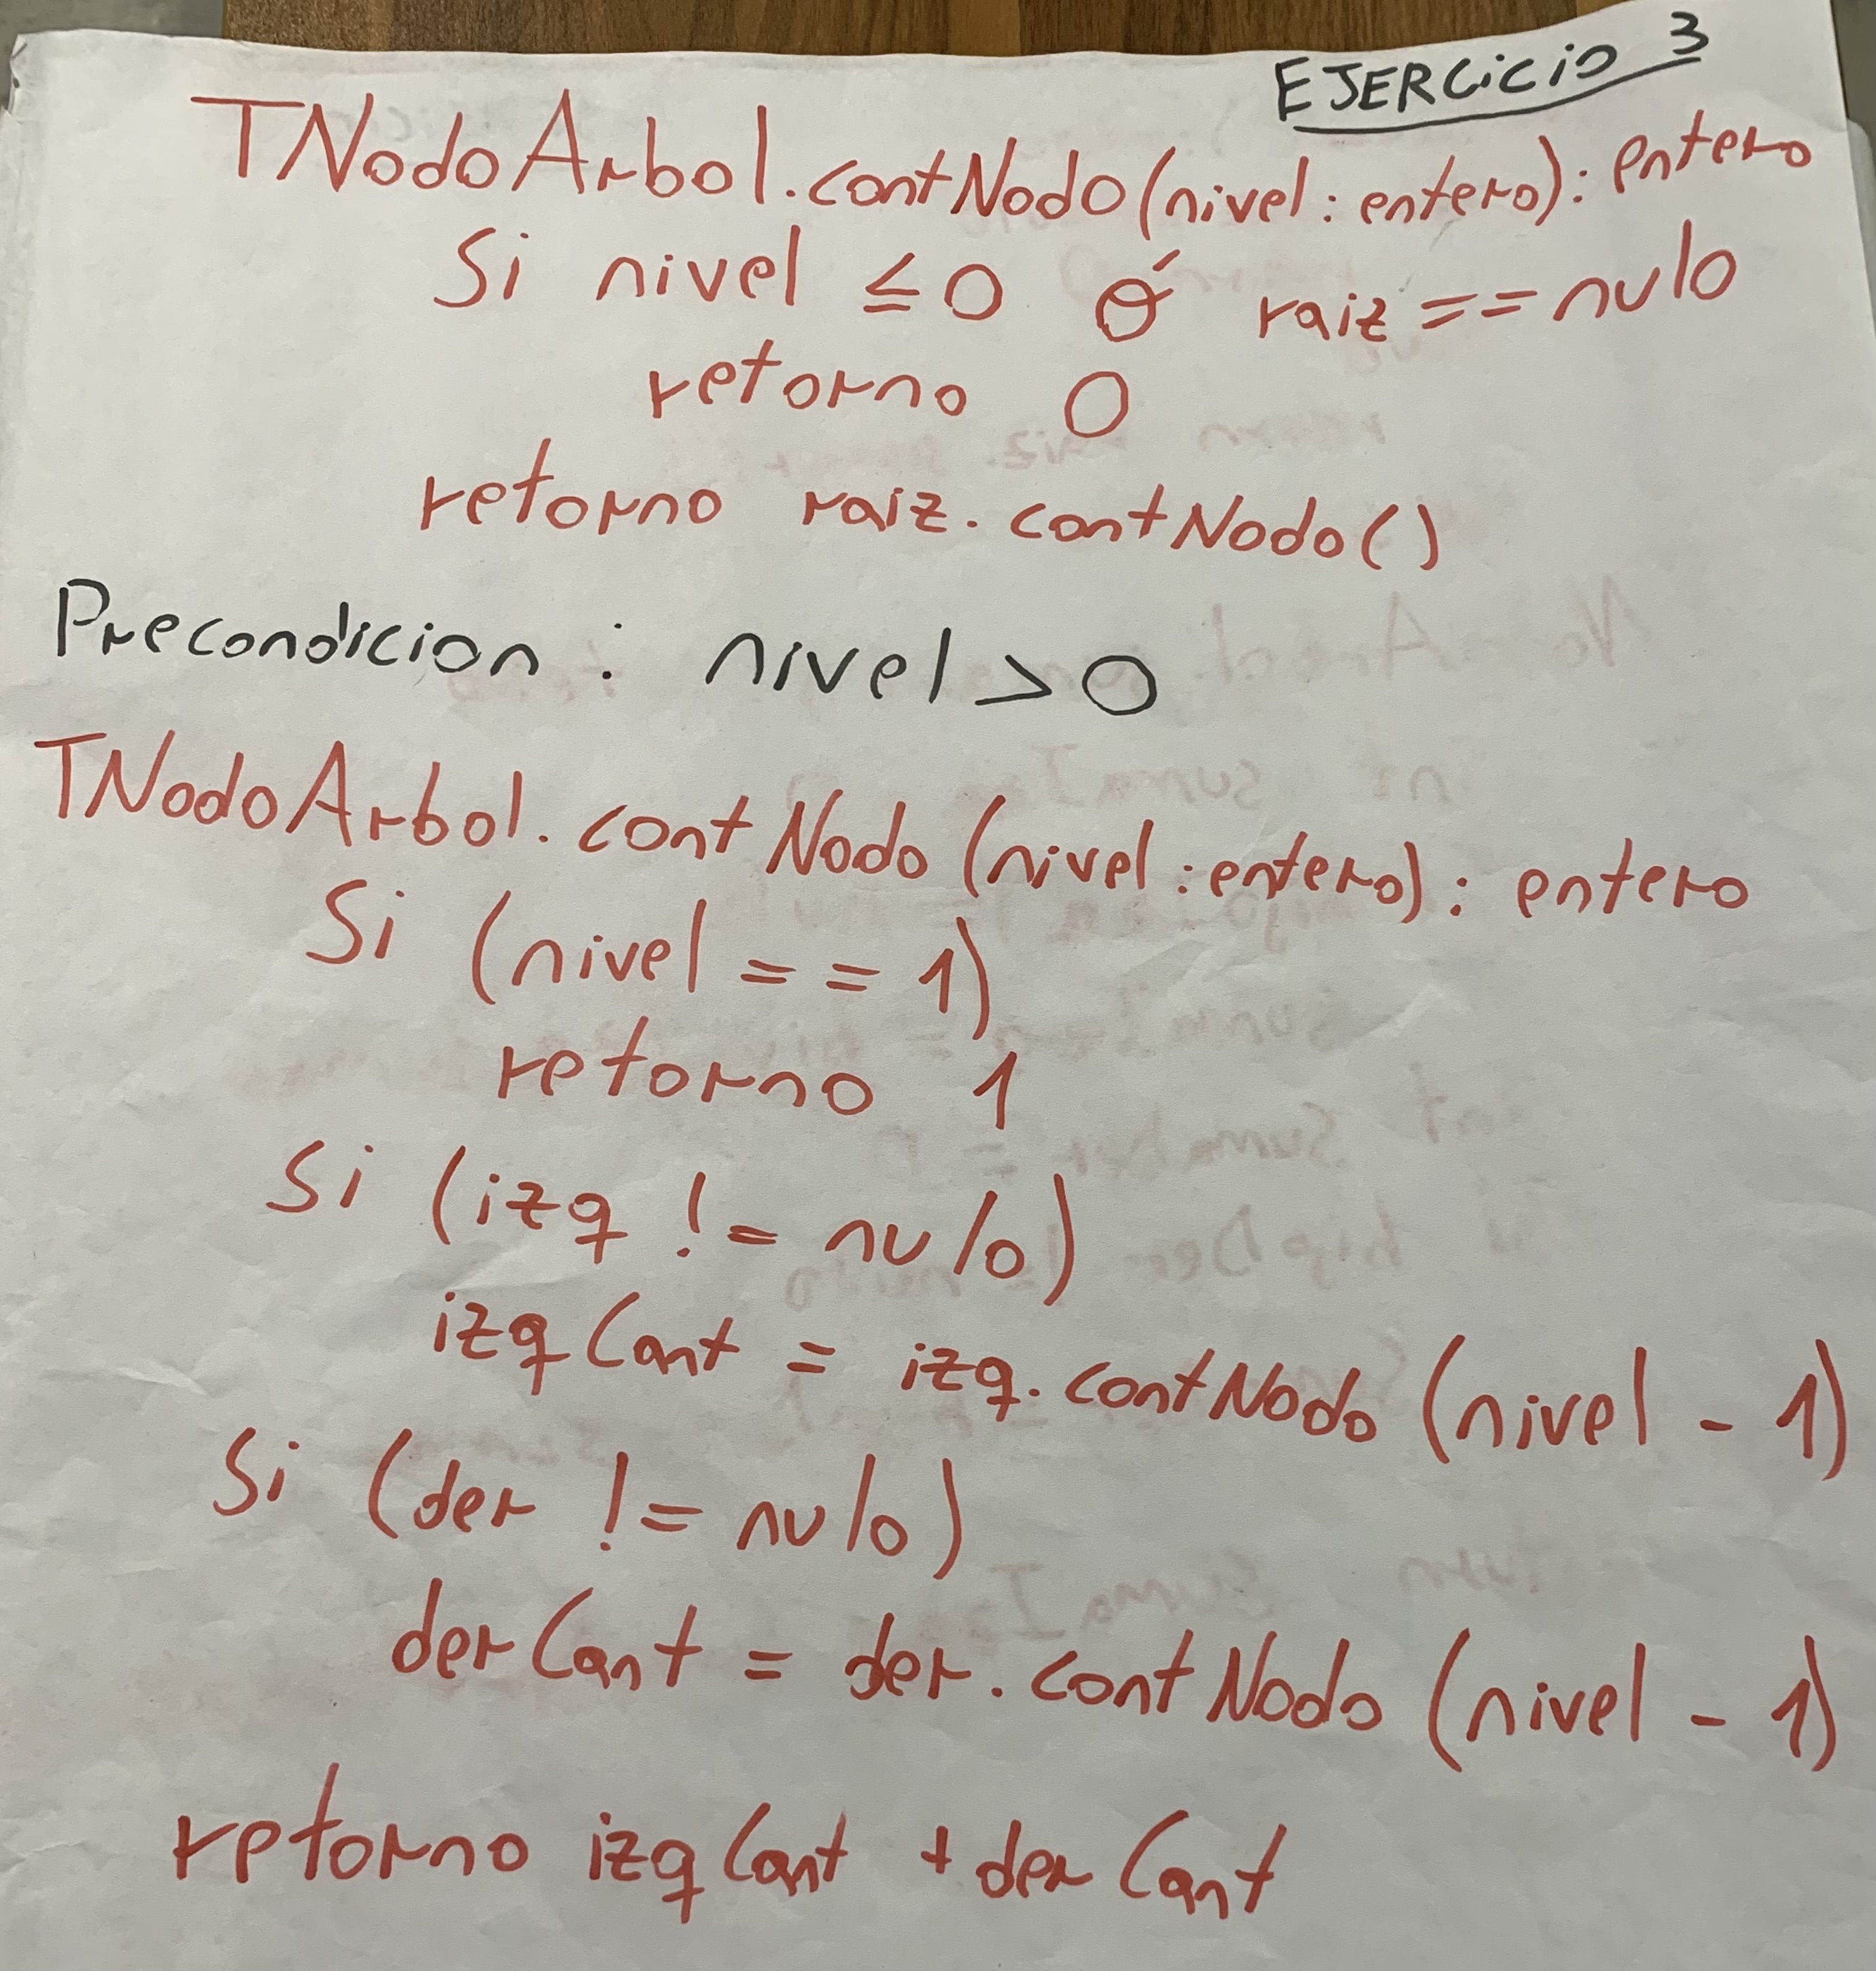 EJERCiCiO 3
TNodoArbol.contNodo(nivel: entero): entero
Si nivel ≤ 0 ó raiz == nulo
retorno 0
retorno raiz.contNodo()
Precondicion : nivel > 0
TNodoArbol.contNodo(nivel: entero): entero
Si (nivel == 1)
retorno 1
Si (izq != nulo)
izqCant = izq.contNodo(nivel - 1)
Si (der != nulo)
derCant = der.contNodo(nivel - 1)
retorno izqCant + derCant